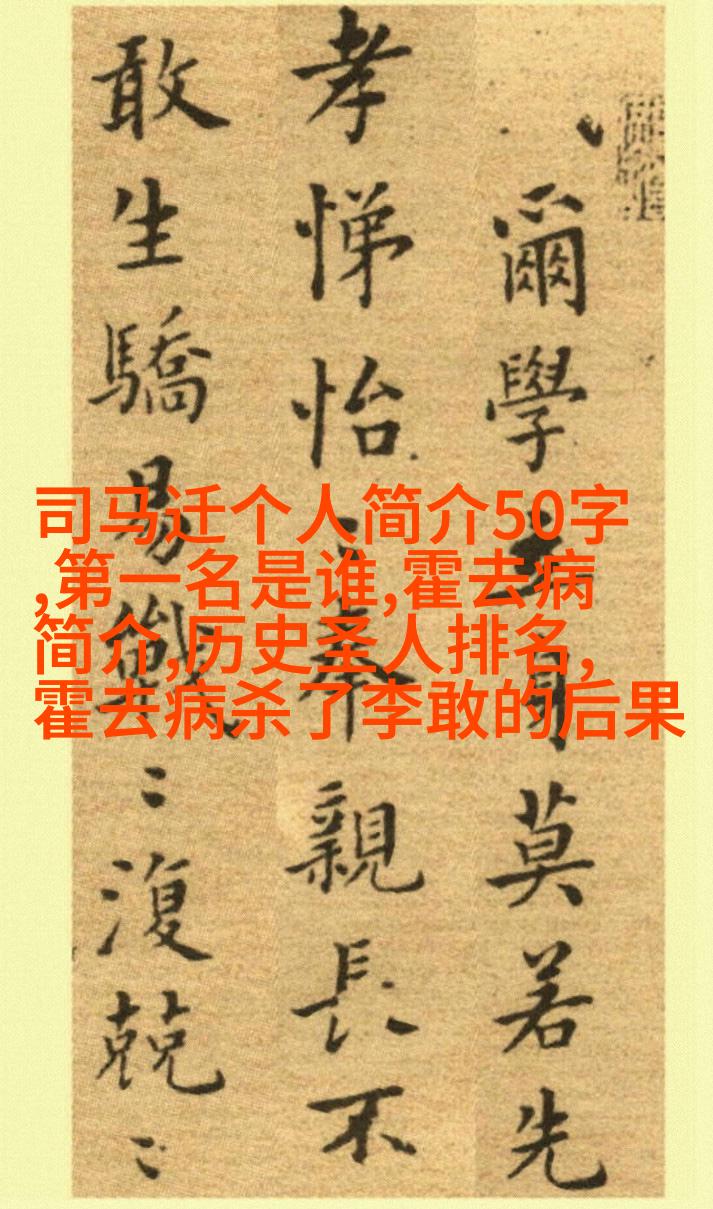 爾學立身莫若先
孝悌怡〻奉親長不
敢生驕易戰〻復兢〻
司马迁个人简介50字
,第一名是谁,霍去病
简介,历史圣人排名,
霍去病杀了李敢的后果